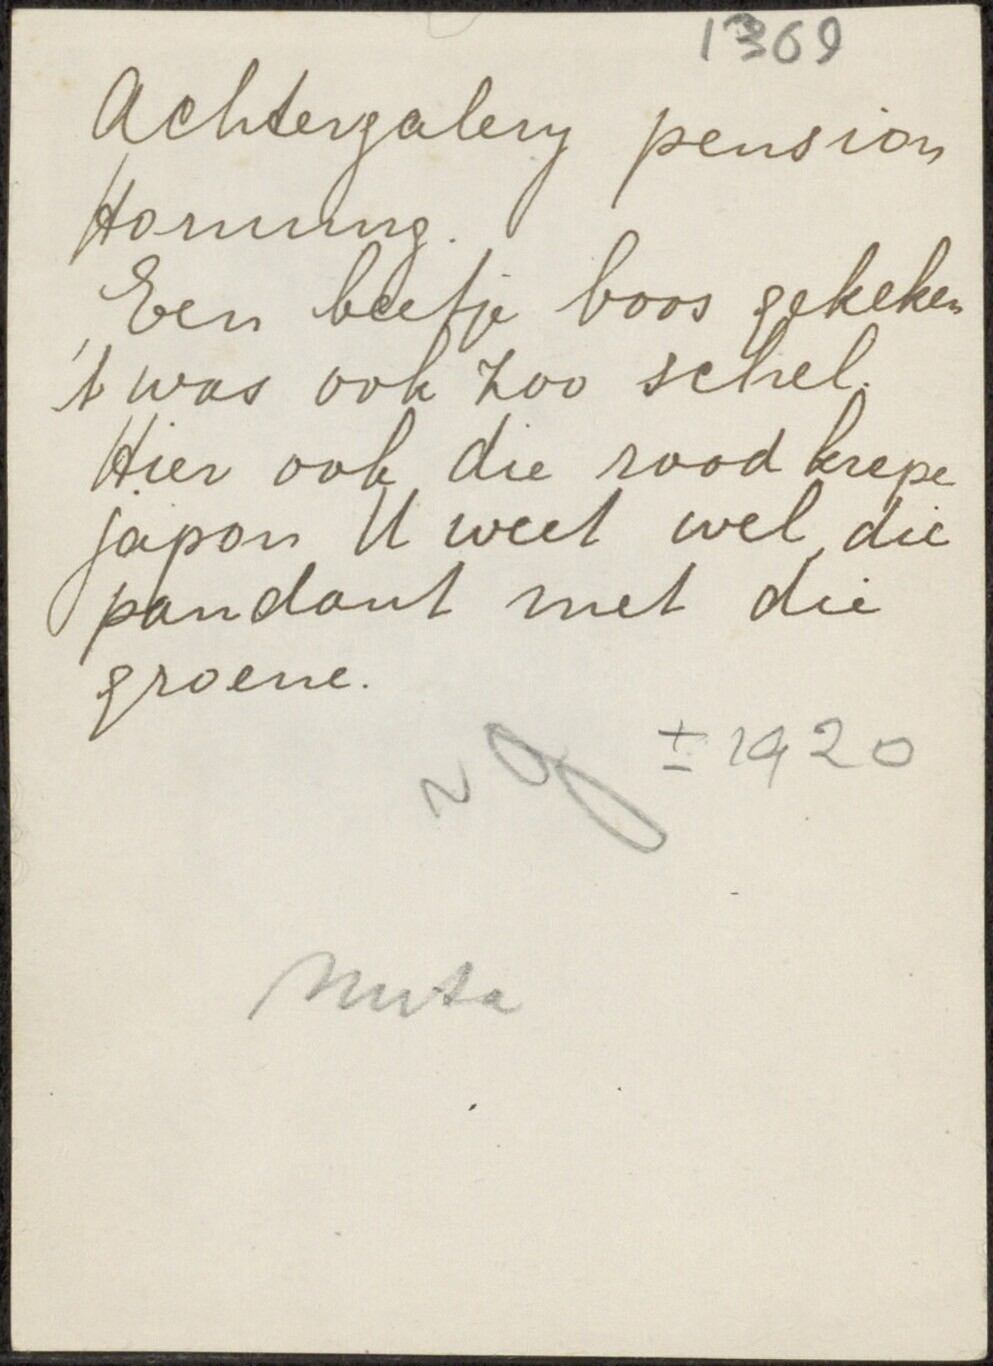 1369
Achtergalery pension
Hornung.
Een beetje boos gekeken
't was ook zoo schel.
Hier ook die rood krepe
japon U weet wel, die
pandant met die
groene.
± 1920